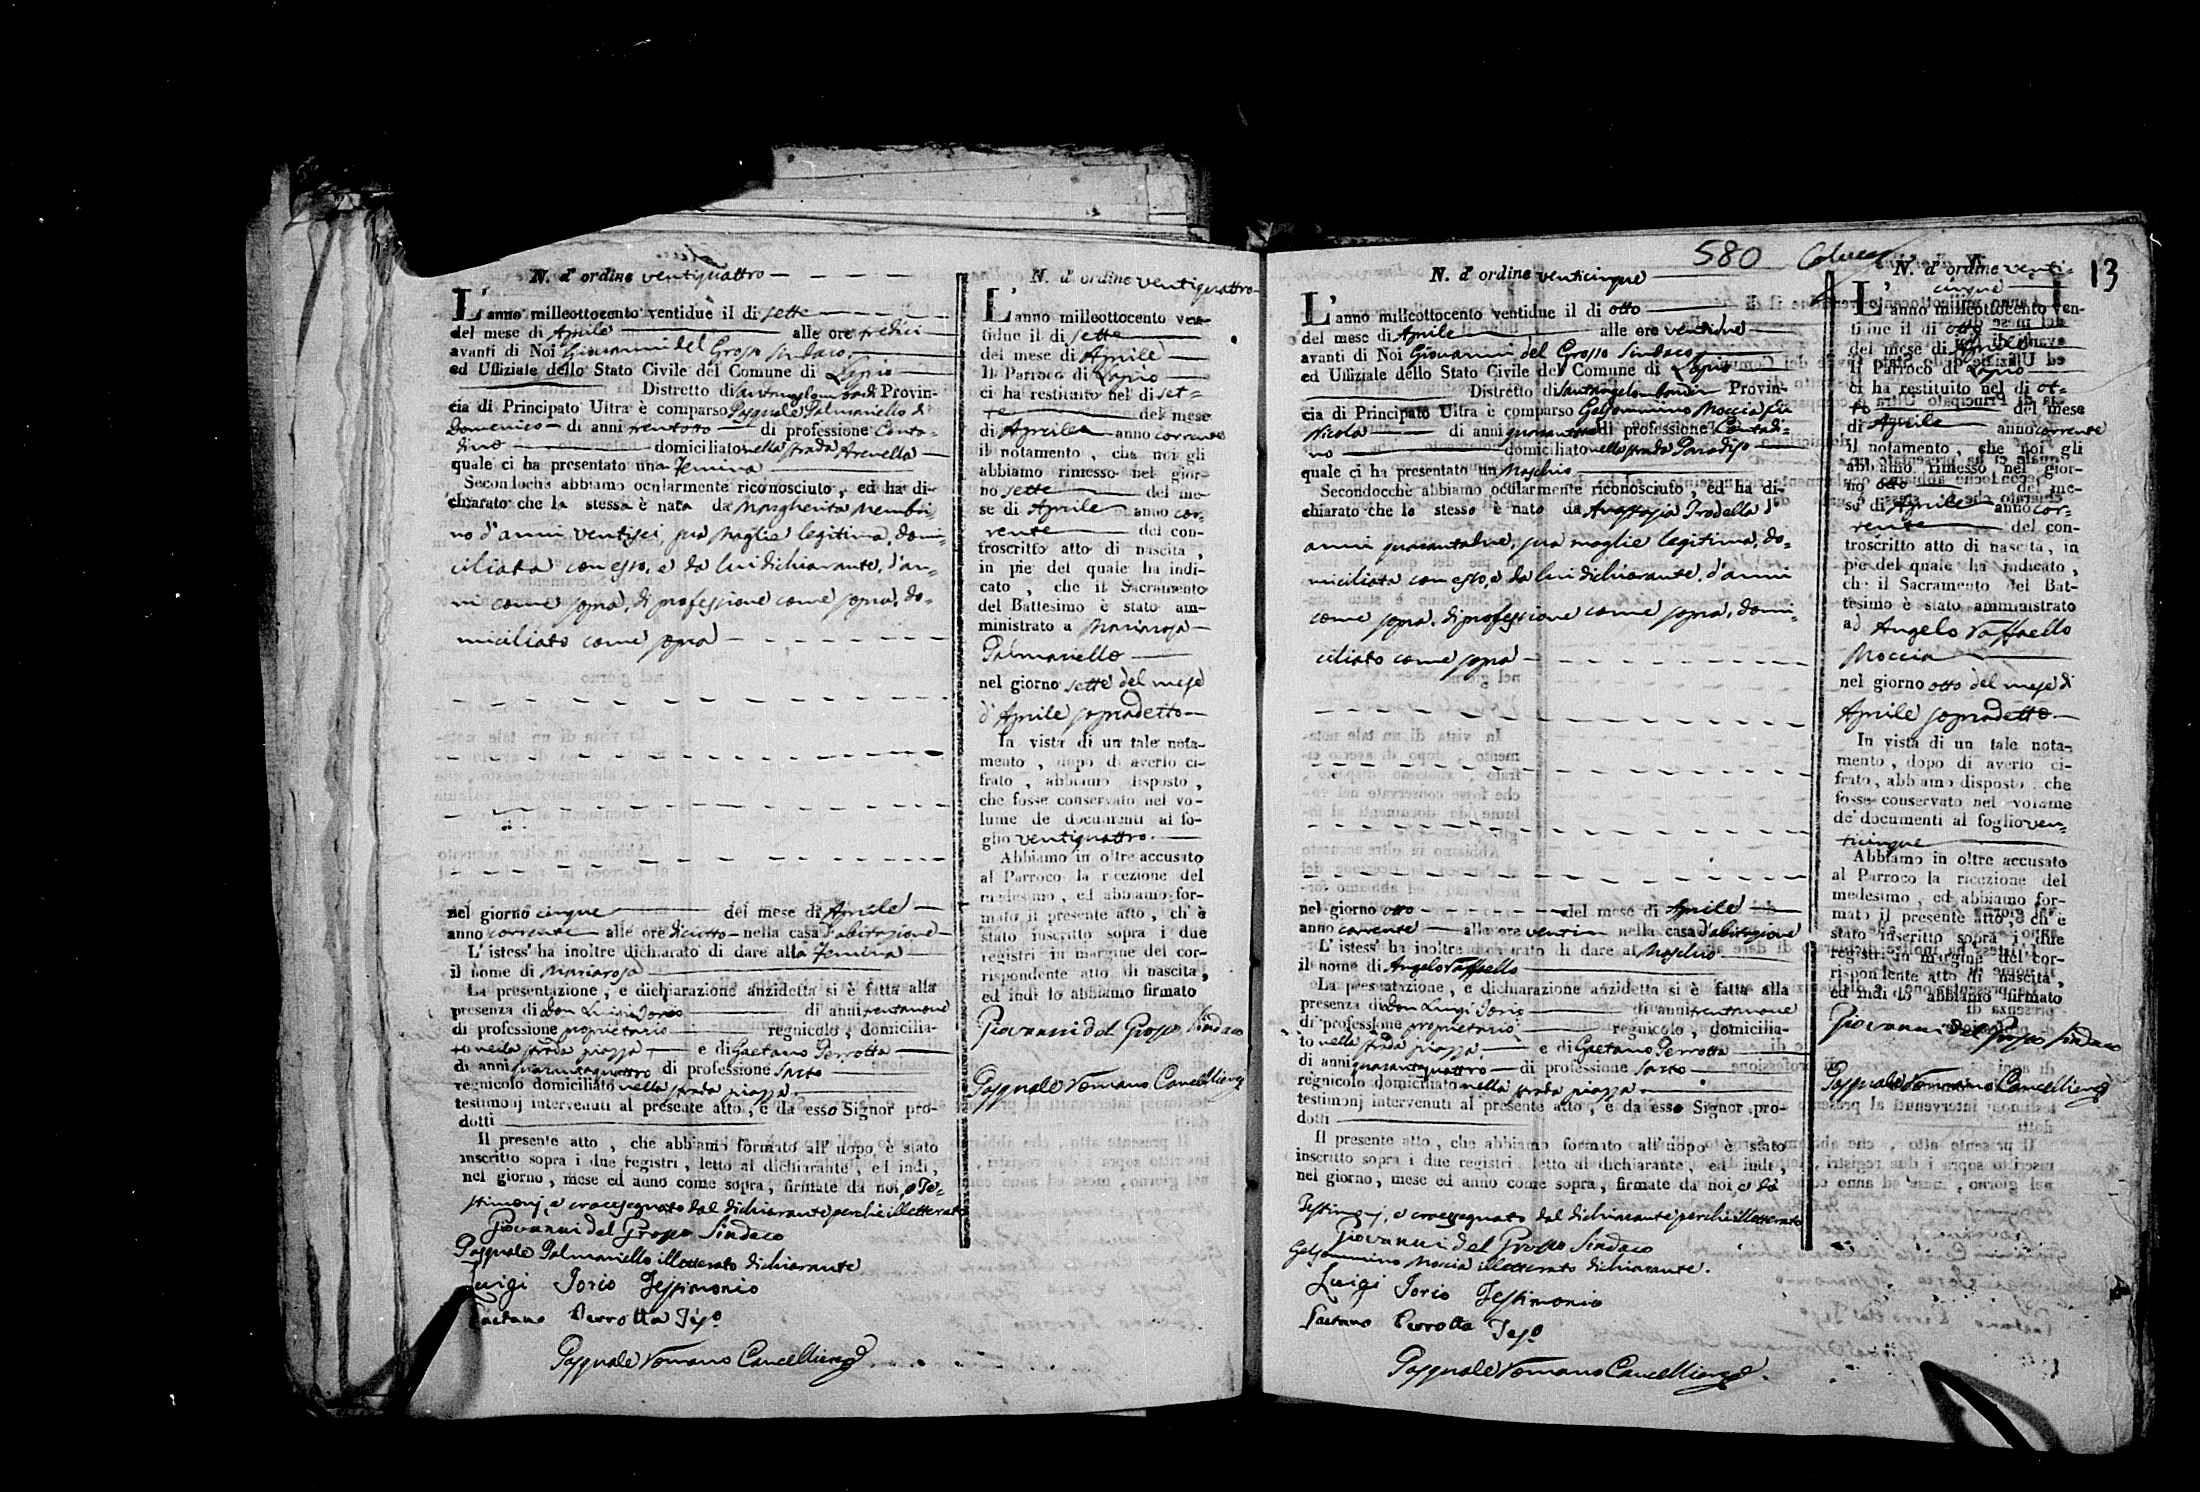 N. d' ordine ventiquattro
L' anno milleottocento ventidue il di sette
del mese di Aprile alle ore tredici
avanti di Noi Giovanni del Grosso Sindaco
ed Uffiziale dello Stato Civile del Comune di Lapio
Distretto di Santangelo Lombardi Provin-
cia di Principato Ultra è comparso Pasquale Palmariello di
Domenico di anni trentotto di professione Conta-
dino domiciliato nella strada Arenella
quale ci ha presentato una Femina
Secondochè abbiamo ocularmente riconosciuto, ed ha di-
chiarato che la stessa è nata da Margherita Membri
no d'anni ventisei, sua moglie legitima, domi-
ciliata con esso, e da lui dichiarante, d'an-
ni come sopra, di professione come sopra, do-
miciliato come sopra
nel giorno cinque del mese di Aprile
anno corrente alle ore diciotto nella casa d'abitazione
L' istess' ha inoltre dichiarato di dare alla Femina
il nome di Mariarosa
La presentazione, e dichiarazione anzidetta si è fatta alla
presenza di Don Luigi Iorio di anni trentanove
di professione proprietario regnicolo, domicilia-
to nella strada piazza e di Gaetano Perrotta
di anni quarantaquattro di professione Sarto
regnicolo domiciliato nella strada piazza
testimonj intervenuti al presente atto, e da esso Signor pro-
dotti
Il presente atto, che abbiamo formato all' uopo, è stato
inscritto sopra i due registri, letto al dichiarante, ed indi,
nel giorno, mese ed anno come sopra, firmate da noi, e Te-
stimonj, e crocesegnato dal dichiarante perchè illetterato
Giovanni del Grosso Sindaco
Pasquale Palmariello illetterato dichiarante
Luigi Iorio Testimonio
Gaetano Perrotta Teso
Pasquale Romano Cancelliere
N. d' ordine ventiquattro
L' anno milleottocento ven-
tidue il di sette
del mese di Aprile
Il Parroco di Lapio
ci ha restituito nel di set-
te del mese
di Aprile anno corrente
il notamento, che noi gli
abbiamo rimesso nel gior-
no sette del me-
se di Aprile anno cor-
rente del con-
troscritto atto di nascita,
in piè del quale ha indi-
cato, che il Sacramento
del Battesimo è stato am-
ministrato a Mariarosa
Palmariello
nel giorno sette del mese
d' Aprile sopradetto
In vista di un tale nota-
mento, dopo di averlo ci-
frato, abbiamo disposto,
che fosse conservato nel vo-
lume de documenti al fo-
glio ventiquattro
Abbiamo in oltre accusato
al Parroco la ricezione del
medesimo, ed abbiamo for-
mato il presente atto, ch' è
stato inscritto sopra i due
registri in margine del cor-
rispondente atto di nascita,
ed indi lo abbiamo firmato
Giovanni del Grosso Sindaco
Pasquale Romano Cancelliere
580
13
N. d' ordine venticinque
L' anno milleottocento ventidue il di otto
del mese di Aprile alle ore ventidue
avanti di Noi Giovanni del Grosso Sindaco
ed Uffiziale dello Stato Civile del Comune di Lapio
Distretto di Santangelo Lombardi Provin-
cia di Principato Ultra è comparso Gelsommino Moccia fu
Nicola di anni di professione Contadi-
no domiciliato nella strada Paradiso
quale ci ha presentato un Maschio
Secondocchè abbiamo ocularmente riconosciuto, ed ha di-
chiarato che lo stesso è nato da Anastasia Trodella d'
anni quarantadue, sua moglie legitima, do-
miciliata con esso, e da lui dichiarante, d'anni
come sopra, di professione come sopra, domi-
ciliato come sopra
nel giorno otto del mese di Aprile
anno corrente alle ore ventin nella casa d'abitazione
L' istess' ha inoltre dichiarato di dare al Maschio
il nome di Angelo Raffaello
La presentazione, e dichiarazione anzidetta si è fatta alla
presenza di Don Luigi Iorio di anni trentanove
di professione proprietario regnicolo, domicilia-
to nella strada piazza e di Gaetano Perrotta
di anni quarantaquattro di professione Sarto
regnicolo domiciliato nella strada piazza
testimonj intervenuti al presente atto, e da esso Signor pro-
dotti
Il presente atto, che abbiamo formato all' uopo è stato
inscritto sopra i due registri, letto al dichiarante, ed indi,
nel giorno, mese ed anno come sopra, firmate da noi, e da
Testimonj, e crocesegnato dal dichiarante perchè illetterato
Giovanni del Grosso Sindaco
Gelsommino Moccia illetterato dichiarante.
Luigi Iorio Testimonio
Gaetano Perrotta Teso
Pasquale Romano Cancelliere
N. d' ordine venti-
cinque
L' anno milleottocento ven-
tidue il di otto
del mese di Aprile
Il Parroco di Lapio
ci ha restituito nel di ot-
to del mese
di Aprile anno corrente
il notamento, che noi gli
abbiamo rimesso nel gior-
no otto del me-
se di Aprile anno cor-
rente del con-
troscritto atto di nascita, in
piè del quale ha indicato,
che il Sacramento del Bat-
tesimo è stato amministrato
ad Angelo Raffaello
Moccia
nel giorno otto del mese di
Aprile sopradetto
In vista di un tale nota-
mento, dopo di averlo ci-
frato, abbiamo disposto che
fosse conservato nel volume
de' documenti al foglio ven-
ticinque
Abbiamo in oltre accusato
al Parroco la ricezione del
medesimo, ed abbiamo for-
mato il presente atto, ch' è
stato inscritto sopra i due
registri in margine del cor-
rispondente atto di nascita,
ed indi lo abbiamo firmato
Giovanni del Grosso Sindaco
Pasquale Romano Cancelliere